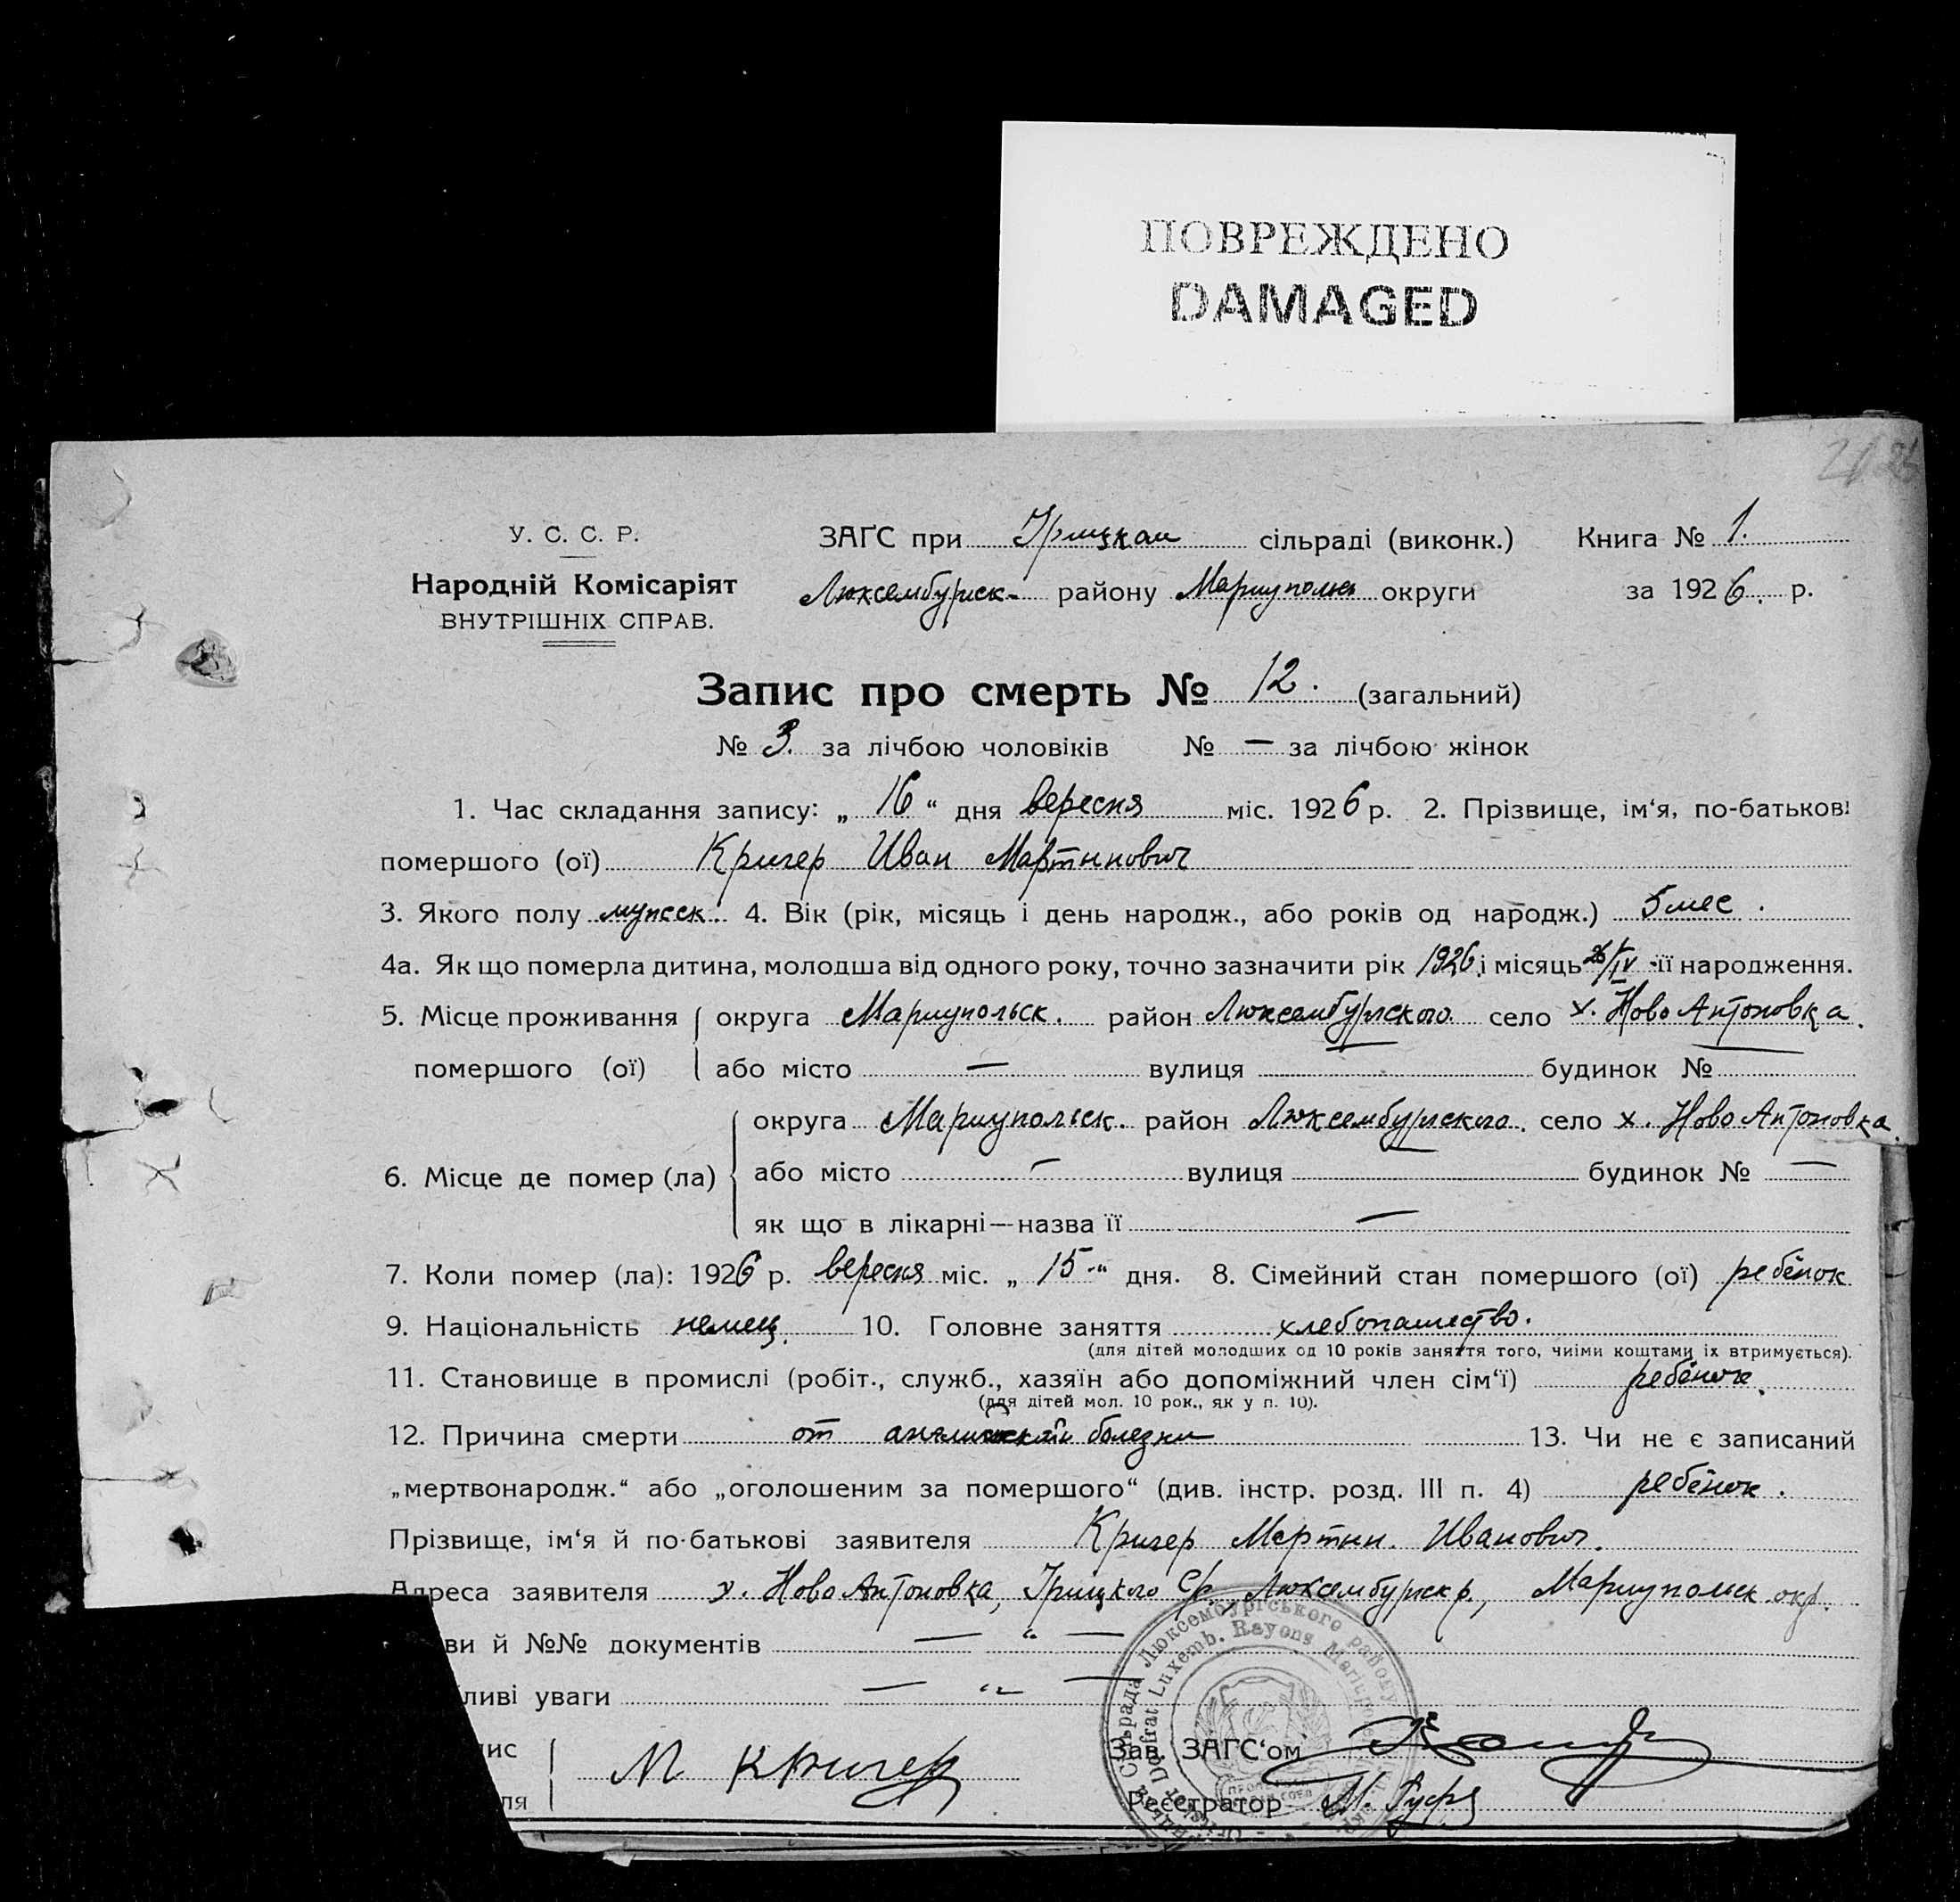 ПОВРЕЖДЕНО
DAMAGED
У. С. С. Р.
Народній Комісаріят
ВНУТРІШНІХ СПРАВ.
ЗАҐС при Грицкам сільраді (виконк.) Книга № 1.
Люксембургск- району Мариуполь округи за 1926. р.
Запис про смерть № 12. (загальний)
№ 3. за лічбою чоловіків № — за лічбою жінок
1. Час складання запису: „ 16 “ дня вересня міс. 1926 р. 2. Прізвище, ім‘я, по-батькові
помершого (ої) Кригер Иван Мартинович
3. Якого полу мужеск. 4. Вік (рік, місяць і день народж., або років од народж.) 5 мес.
4а. Як що померла дитина, молодша від одного року, точно зазначити рік 1926 і місяць 26/IV її народження.
5. Місце проживання округа Мариупольск. район Люксембургского село х. Ново Антоновка.
помершого (ої) або місто — вулиця будинок №
округа Мариупольск. район Люксембургского. село х. Ново Антоновка.
6. Місце де помер (ла) або місто — вулиця будинок № —
як що в лікарні—назва її —
7. Коли помер (ла): 1926 р. вересня міс. „ 15 “ дня. 8. Сімейний стан помершого (ої) ребёнок
9. Національність немец. 10. Головне заняття хлебопашество.
(для дітей молодших од 10 років заняття того, чиїми коштами їх втримується).
11. Становище в промислі (робіт., служб., хазяїн або допоміжний член сім‘ї) ребёнок.
(для дітей мол. 10 рок., як у п. 10).
12. Причина смерти от английской болезни 13. Чи не є записаний
„мертвонародж.“ або „оголошеним за помершого“ (див. інстр. розд. III п. 4) ребёнок.
Прізвище, ім‘я й по-батькові заявителя Кригер Мартин. Иванович.
Адреса заявителя х. Ново Антоновка, Грицкого С/р., Люксембургск р., Мариупольск. окр.
ви й №№ документів — “ —
ливі уваги — “ —
ис М Кригер Зав. ЗАҐС‘ом
ля Реєстратор М.
Сільрада Люксембургського району
Dorfrat Luxemb. Rayons Mariupol